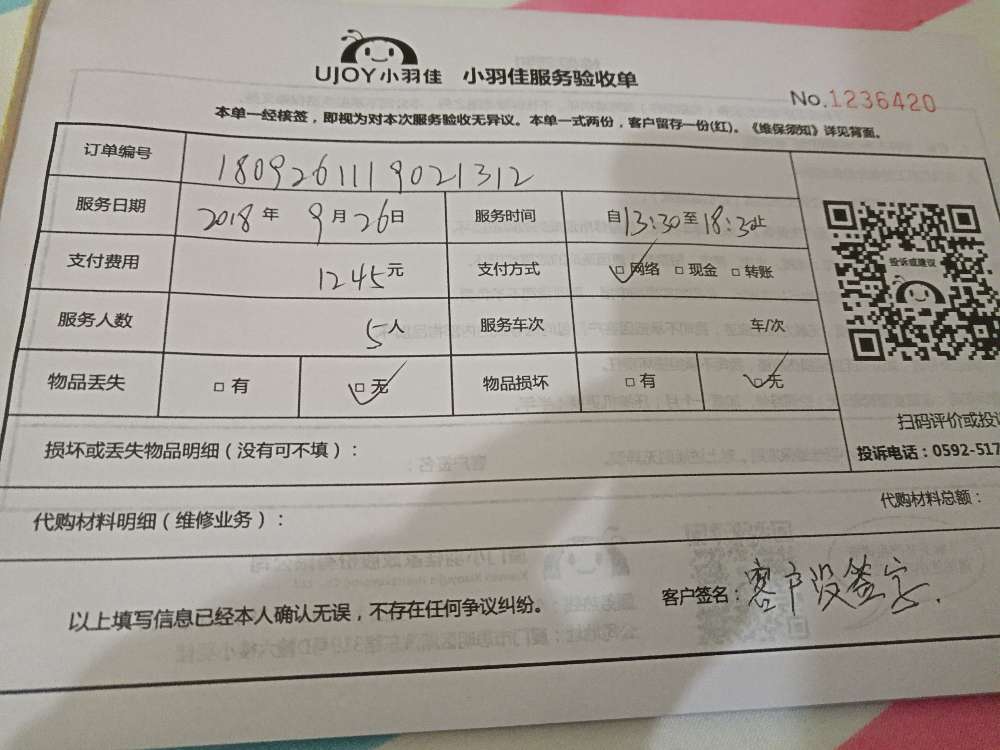 UJOY小羽佳 小羽佳服务验收单
No.1236420
本单一经核签，即视为对本次服务验收无异议。本单一式两份，客户留存一份(红)。《维保须知》详见背面。
订单编号 1809261119021312
服务日期 2018年9月26日 服务时间 自13:30至18:30止
投诉或建议
支付费用 1245元 支付方式 □网络 □现金 □转账
服务人数 5人 服务车次 车/次
物品丢失 □有 □无 物品损坏 □有 □无
扫码评价或投
损坏或丢失物品明细（没有可不填）：
投诉电话：0592-517
代购材料明细（维修业务）： 代购材料总额：
以上填写信息已经本人确认无误，不存在任何争议纠纷。 客户签名：客户没签字.